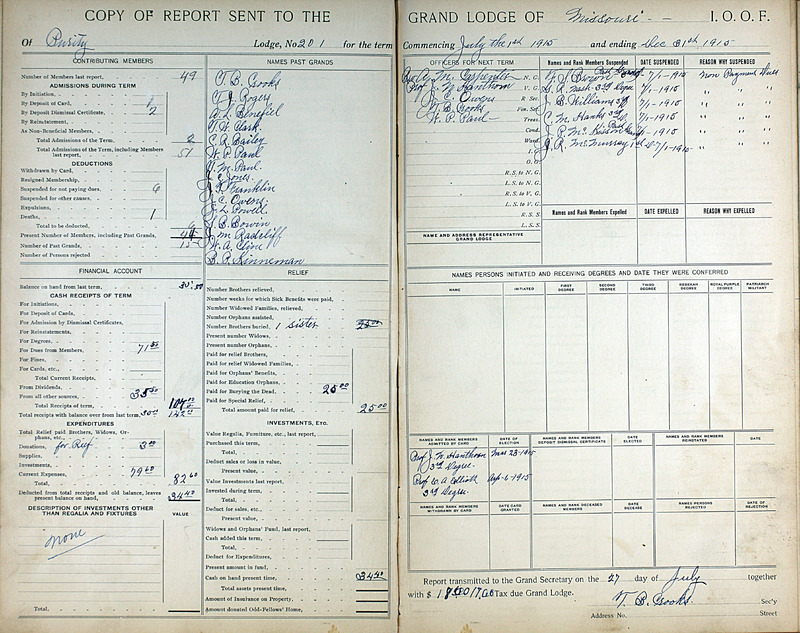 COPY OF REPORT SENT TO THE
Of Purity Lodge, No 201 for the term
CONTRIBUTING MEMBERS
Number of Members last report, 49
ADMISSIONS DURING TERM
By Initiation,
By Deposit of Card,
By Deposit Dismissal Certificate, 2
By Reinstatement,
As Non-Beneficial Members,
Total Admissions of the Term, 2
Total Admissions of the Term, including Members last report, 51
DEDUCTIONS
Withdrawn by Card,
Resigned Membership,
Suspended for not paying dues, 6
Suspended for other causes,
Expulsions,
Deaths, 1
Total to be deducted,
Present Number of Members, including Past Grands, 44
Number of Past Grands, 15
Number of Persons rejected
NAMES PAST GRANDS
T. B. Cooks
C. J. Rogers
A. L. Benefiel
T. W. Clark
C. R. Bailey
W. P. Paul
J. M. Paul
J. C. Jones
J. P. Franklin
J. C. Owens
J. L. Powell
J. B. Bowin
J. M. Radcliff
W. A. Cline
B. P. Kinneman
FINANCIAL ACCOUNT
Balance on hand from last term,
CASH RECEIPTS OF TERM
For Initiations,
For Deposit of Cards,
For Admission by Dismissal Certificates,
For Reinstatements,
For Degrees,
For Dues from Members, 71 50
For Fines,
For Cards, etc.,
Total Current Receipts,
From Dividends,
From all other sources, 35 50
Total Receipts of term,
Total receipts with balance over from last term,
EXPENDITURES
Total Relief paid Brothers, Widows, Orphans, etc.,
Donations, for Relief 3 00
Supplies,
Investments,
Current Expenses, 79 60
Total, 82 60
Deducted from total receipts and old balance, leaves present balance on hand, 34 40
DESCRIPTION OF INVESTMENTS OTHER THAN REGALIA AND FIXTURES
VALUE
none
Total,
RELIEF
Number Brothers relieved,
Number weeks for which Sick Benefits were paid,
Number Widowed Families, relieved,
Number Orphans assisted,
Number Brothers buried, 1 sister 25 00
Present number Widows,
Present number Orphans,
Paid for relief Brothers,
Paid for relief Widowed Families,
Paid for Orphans' Benefits,
Paid for Education Orphans,
Paid for Burying the Dead, 25 00
Paid for Special Relief,
Total amount paid for relief, 25 00
INVESTMENTS, Etc.
Value Regalia, Furniture, etc., last report,
Purchased this term,
Total,
Deduct sales or loss in value,
Present value,
Value Investments last report,
Invested during term,
Total,
Deduct for sales, etc.,
Present value,
Widows and Orphans' Fund, last report,
Cash added this term,
Total,
Deduct for Expenditures,
Present amount in fund,
Cash on hand present time, 34 40
Total assets present time,
Amount of Insurance on Property,
Amount donated Odd-Fellows' Home,
GRAND LODGE OF Missouri I. O. O. F.
Commencing July the 1st 1915 and ending Dec 31st 1915
OFFICERS FOR NEXT TERM
A. M. Carpenter N. G.
J. W. Hanthorn V. G.
J. C. Owens R. Sec.
T. B. Cooks Fin. Sec.
W. P. Paul Treas.
Cond.
Ward.
I. G.
O. G.
R. S. to N. G.
L. S. to N. G.
R. S. to V. G.
L. S. to V. G.
R. S. S.
L. S. S.
NAME AND ADDRESS REPRESENTATIVE GRAND LODGE
Names and Rank Members Suspended
DATE SUSPENDED
REASON WHY SUSPENDED
W. J. Bowin Past Grand 7/1-1915 non Payment Dues
S. R. Nash 3rd Degree 7/1-1915 " "
J. B. Williams 3rd 7/1-1915 " "
C. M. Hanks 3rd 7/1-1915 " "
-1915 " "
J. R. McMurray 1st d 7/1-1915 " "
Names and Rank Members Expelled
DATE EXPELLED
REASON WHY EXPELLED
NAMES PERSONS INITIATED AND RECEIVING DEGREES AND DATE THEY WERE CONFERRED
NAME
INITIATED
FIRST DEGREE
SECOND DEGREE
THIRD DEGREE
REBEKAH DEGREE
ROYAL PURPLE DEGREE
PATRIARCH MILITANT
NAMES AND RANK MEMBERS ADMITTED BY CARD
DATE OF ELECTION
NAMES AND RANK MEMBERS DEPOSIT DISMISSAL CERTIFICATE
DATE ELECTED
NAMES AND RANK MEMBERS REINSTATED
DATE
J. W. Hanthorn Mar 23-1915
3rd Degree.
W. A. Elliott Apr-6-1915
3rd Degree.
NAMES AND RANK MEMBERS WITHDRAWN BY CARD
DATE CARD GRANTED
NAMES AND RANK DECEASED MEMBERS
DATE DECEASE
NAMES PERSONS REJECTED
DATE OF REJECTION
Report transmitted to the Grand Secretary on the 27 day of July together
with $ Tax due Grand Lodge.
T. B. Cooks Sec'y
Address No. Street